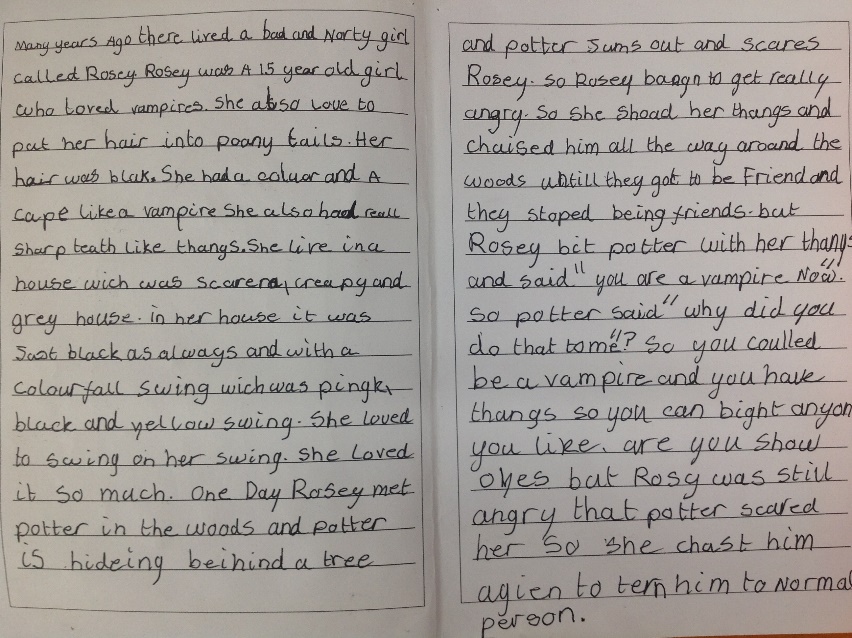 Many years Ago there lived a bad and Norty girl
called Rosey Rosey was A 15 year old girl
who loved vampires. She also love to
put her hair into poany tails. Her
hair was blak. She had a coluor and A
cape like a vampire She also had reall
sharp teath like thangs. She live in a
house wich was scarena, creapy and
grey house. in her house it was
Just black as always and with a
colourfall swing wich was pingk,
black and yellow swing. She loved
to swing on her swing. She loved
it so much. One Day Rosey met
potter in the woods and potter
is hideing beihind a tree
and potter Jums out and scares
Rosey. so Rosey baagn to get really
angry. So she shoad her thangs and
chaised him all the way around the
woods untill they got to be Friend and
they stoped being friends. but
Rosey bit potter with her thangs
and said " you are a vampire Now".
so potter said " why did you
do that to me"? So you coulled
be a vampire and you have
thangs so you can bight anyon
you like. are you show
oyes but Rosy was still
angry that potter scared
her So she chast him
agien to tern him to Normal
person.